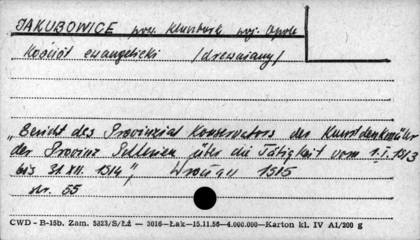 JAKUBOWICE pow. Kluczbork woj. Opole
Kościół ewangelicki /drewniany/
"Bericht des Provinzial Konservators der Kunstdenkmäler
der Provinz Schlesien über die Tätigkeit vom 1.I.1913
bis 31 XII. 1914", Wrocław 1915
str. 55
CWD - B-15b. Zam. 5823/S/ŁŻ — 3016—Łak—15.11.56—4.000.000—Karton kl. IV A1/200 g